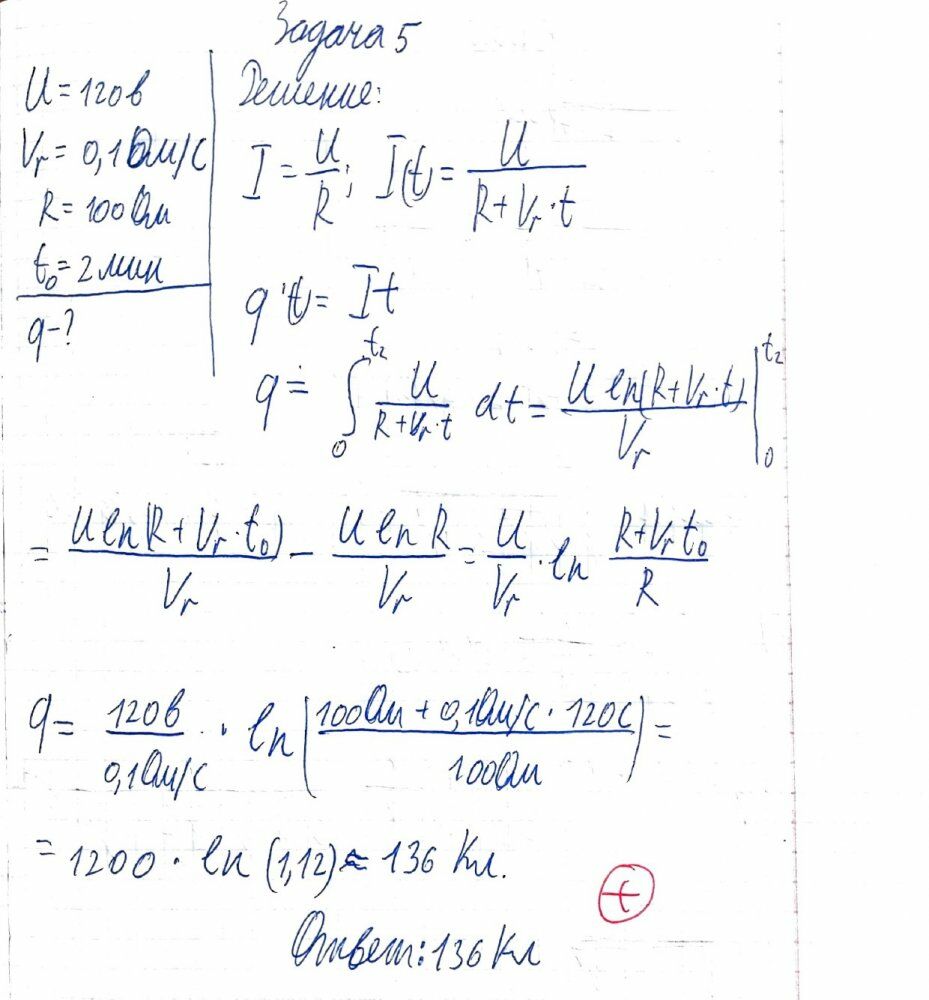 Задача 5
U = 120 в
V_r = 0,1 Ом/с
R = 100 Ом
t_0 = 2 мин
q - ?
Решение:
I = U/R; I(t) = U/(R + V_r · t)
q'(t) = It
q = ∫_0^{t_2} U/(R + V_r · t) dt = U ln(R + V_r · t)/V_r |_0^{t_2}
= U ln(R + V_r · t_0)/V_r - U ln R/V_r = U/V_r · ln (R + V_r t_0)/R
q = 120 в/0,1 Ом/с · ln((100 Ом + 0,1 Ом/с · 120 с)/100 Ом) =
= 1200 · ln (1,12) ≈ 136 Кл.
+
Ответ: 136 Кл